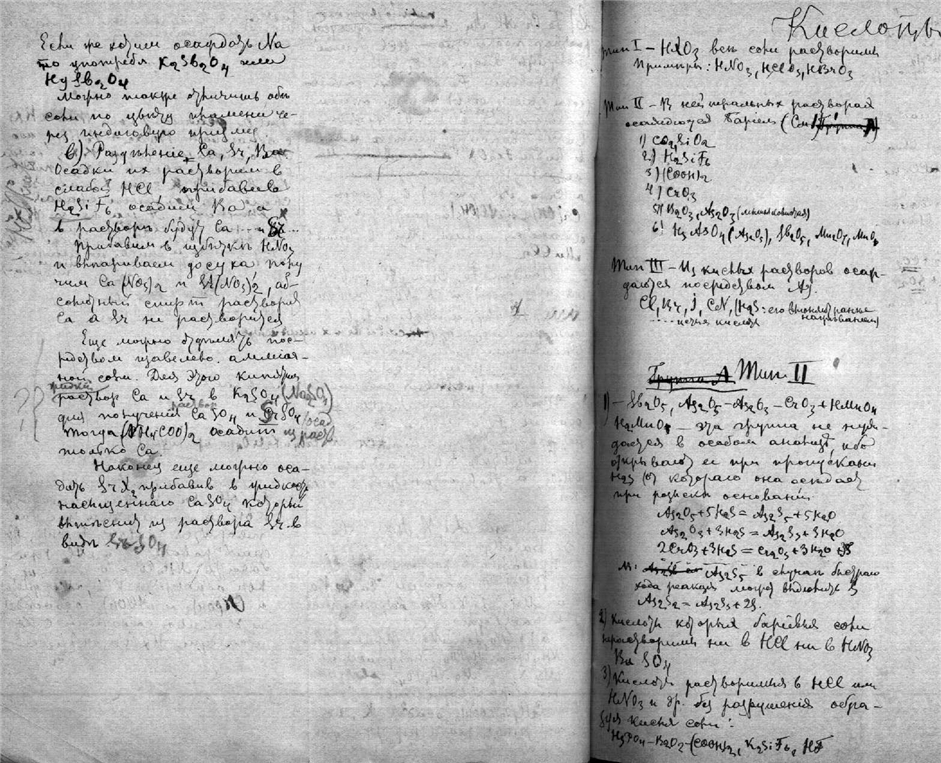 Если же хотим осаждать Na
то употребл. K2Sb2O4 или
H2Sb2O4
Можно также отличить обе
соли по цвету пламени че-
рез индиговую призму
б) Разделение Ca, Sr, Ba
Осадки их растворим в
слабой HCl прибавив
H2SiF6 осадим Ba а
в растворе будут Ca и Sr
Прибавим в избытке HNO3
и выпариваем досуха полу
чим Ca(NO3)2 и Sr(NO3)2, аб-
солютный спирт растворя
Ca а Sr не растворится
Еще можно отделить пос-
редством щавелево. аммиач-
ной соли. Для этого кипятим
раствор Ca и Sr в K2SO4 (Na2SO4)
для получения CaSO4 и SrSO4
тогда (NH4COO)2 осадит из раств
только Ca
Наконец еще можно оса-
дить SrX2 прибавив в жидкость
насыщенного CaSO4 который
вытеснит из раствора Sr в
виде SrSO4
Кислоты
Тип I – HXO3 все соли растворимы
Примеры: HNO3, HClO3, HBrO3
Тип II – В нейтральных растворах
осаждаются Барием
1) CO2, SiO2
2) H2SiF6
3) (COOH)2
4) CrO3
5) B2O3, As2O3
6) H3AsO4 (As2O5), Sb2O5, Mn2O7, MnO3
Тип III – Из кислых растворов осаж-
даются посредством Ag
Cl, Br, J, CN, (H2S: его
Группа A Тип II
1) – Sb2O5, As2O5 – As2O3 – CrO3 + HMnO4
H2MnO4 – эта группа не нуж-
дается в особом анализе, ибо
открывают ее при пропускании
H2S от которого она оседает
при розыске оснований
As2O5 + 5H2S = As2S5 + 5H2O
As2O3 + 3H2S = As2S3 + 3H2O
2CrO3 + 3H2S = Cr2O3 + 3H2O + 3S
As2S5 в случае быстрого
хода реакции может выделить S
2) Кислоты которых бариевые соли
нерастворимы ни в HCl ни в HNO3
BaSO4
3) Кислоты растворимые в HCl или
HNO3 и др. без разрушения обра-
зуя кислые соли:
H3PO4 – B2O3 – (COOH)2, K2SiF6, HF